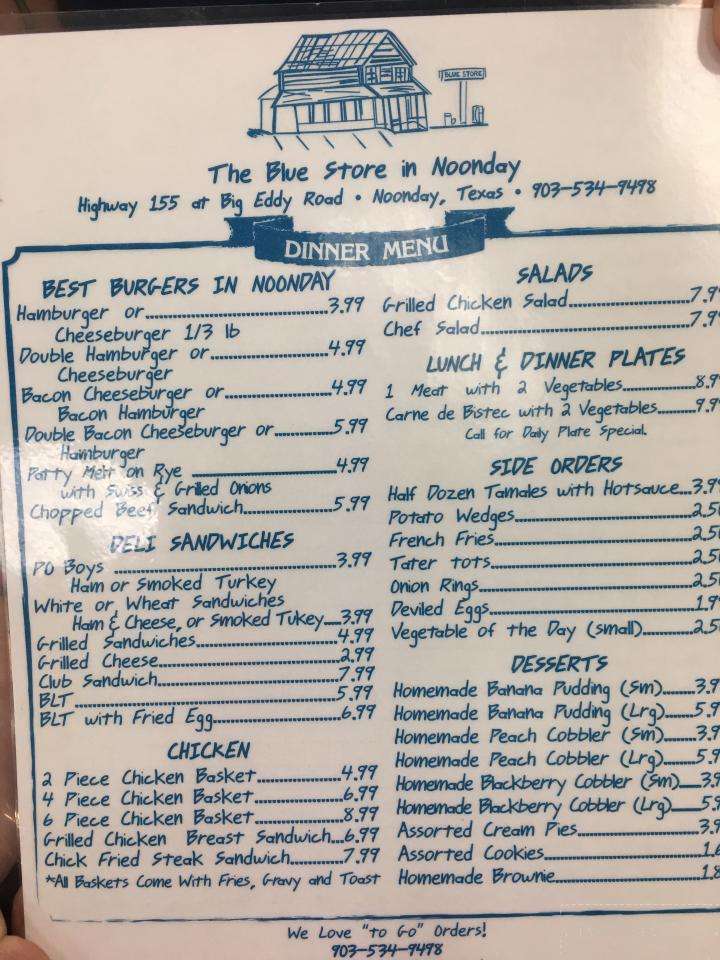 BLUE STORE
The Blue Store in Noonday
Highway 155 at Big Eddy Road • Noonday, Texas • 903-534-9498
DINNER MENU
BEST BURGERS IN NOONDAY
Hamburger or 3.99
Cheeseburger 1/3 lb
Double Hamburger or 4.99
Cheeseburger
Bacon Cheeseburger or 4.99
Bacon Hamburger
Double Bacon Cheeseburger or 5.99
Hamburger
Patty Melt on Rye 4.99
with Swiss & Grilled Onions
Chopped Beef Sandwich 5.99
DELI SANDWICHES
PO Boys 3.99
Ham or Smoked Turkey
White or Wheat Sandwiches
Ham & Cheese, or Smoked Tukey 3.99
Grilled Sandwiches 4.99
Grilled Cheese 2.99
Club Sandwich 7.99
BLT 5.99
BLT with Fried Egg 6.99
CHICKEN
2 Piece Chicken Basket 4.99
4 Piece Chicken Basket 6.99
6 Piece Chicken Basket 8.99
Grilled Chicken Breast Sandwich 6.99
Chick Fried Steak Sandwich 7.99
*All Baskets Come With Fries, Gravy and Toast
SALADS
Grilled Chicken Salad 7.9
Chef Salad 7.9
LUNCH & DINNER PLATES
1 Meat with 2 Vegetables 8.9
Carne de Bistec with 2 Vegetables 9.9
Call for Daily Plate Special.
SIDE ORDERS
Half Dozen Tamales with Hotsauce 3.9
Potato Wedges 2.5
French Fries 2.5
Tater tots 2.5
Onion Rings 2.5
Deviled Eggs 1.9
Vegetable of the Day (small) 2.5
DESSERTS
Homemade Banana Pudding (Sm) 3.9
Homemade Banana Pudding (Lrg) 5.9
Homemade Peach Cobbler (Sm) 3.9
Homemade Peach Cobbler (Lrg) 5.9
Homemade Blackberry Cobbler (Sm) 3.9
Homemade Blackberry Cobbler (Lrg) 5.9
Assorted Cream Pies 3.9
Assorted Cookies 1.
Homemade Brownie 1.8
We Love "to Go" Orders!
903-534-9498